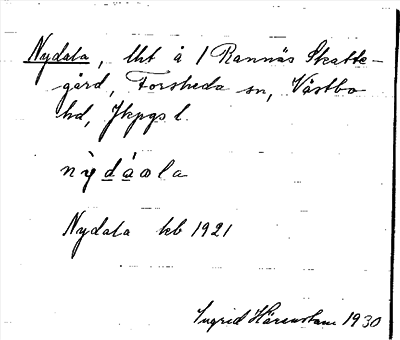 Nydala, lht å 1 Rannäs Skatte-
gård, Forsheda sn, Västbo
hd, Jkpgs l.
nỳdáωla
Nydala kb 1921
Ingrid Härenstam 1930